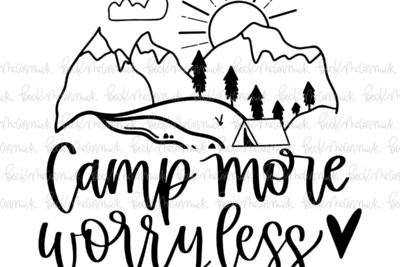 Camp more
worry less